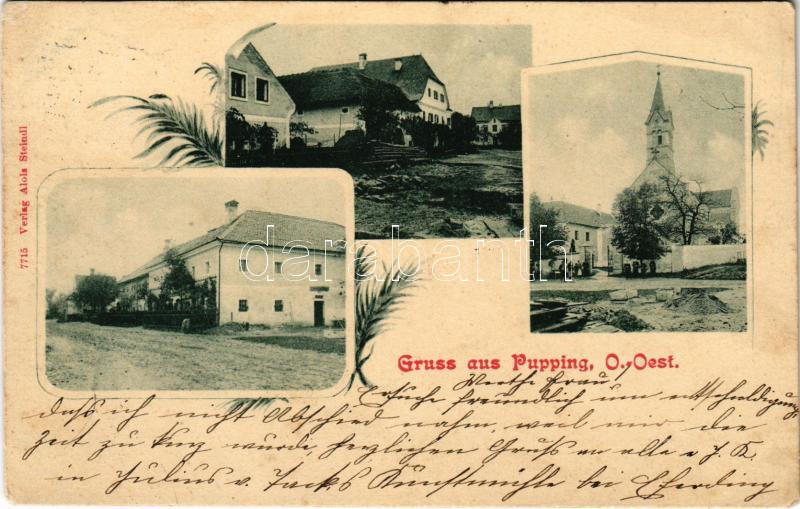 7715 Verlag Alois Steindl
darabanth
Gruss aus Pupping, O.-Oest.
Werthe Frau!
Ersuche freundlich um entschuldigung
dass ich nicht Abschied nahm, weil mir die
Zeit zu kurz wurde, herzlichen Gruss an alle v J. K.
in Julius v. Jack's Kunstmühle bei Eferding